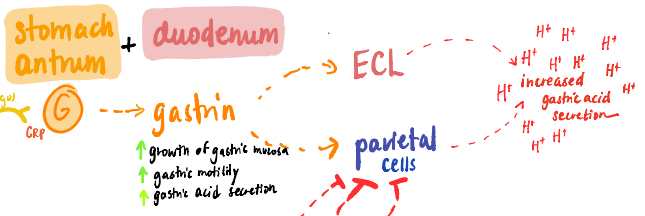 stomach
antrum
+
duodenum
G
GRP
gastrin
↑ growth of gastric mucosa
↑ gastric motility
↑ gastric acid secretion
ECL
parietal
cells
H+ H+ H+
H+ H+ H+ H+
H+ increased H+
gastric acid
secretion
H+ H+
H+